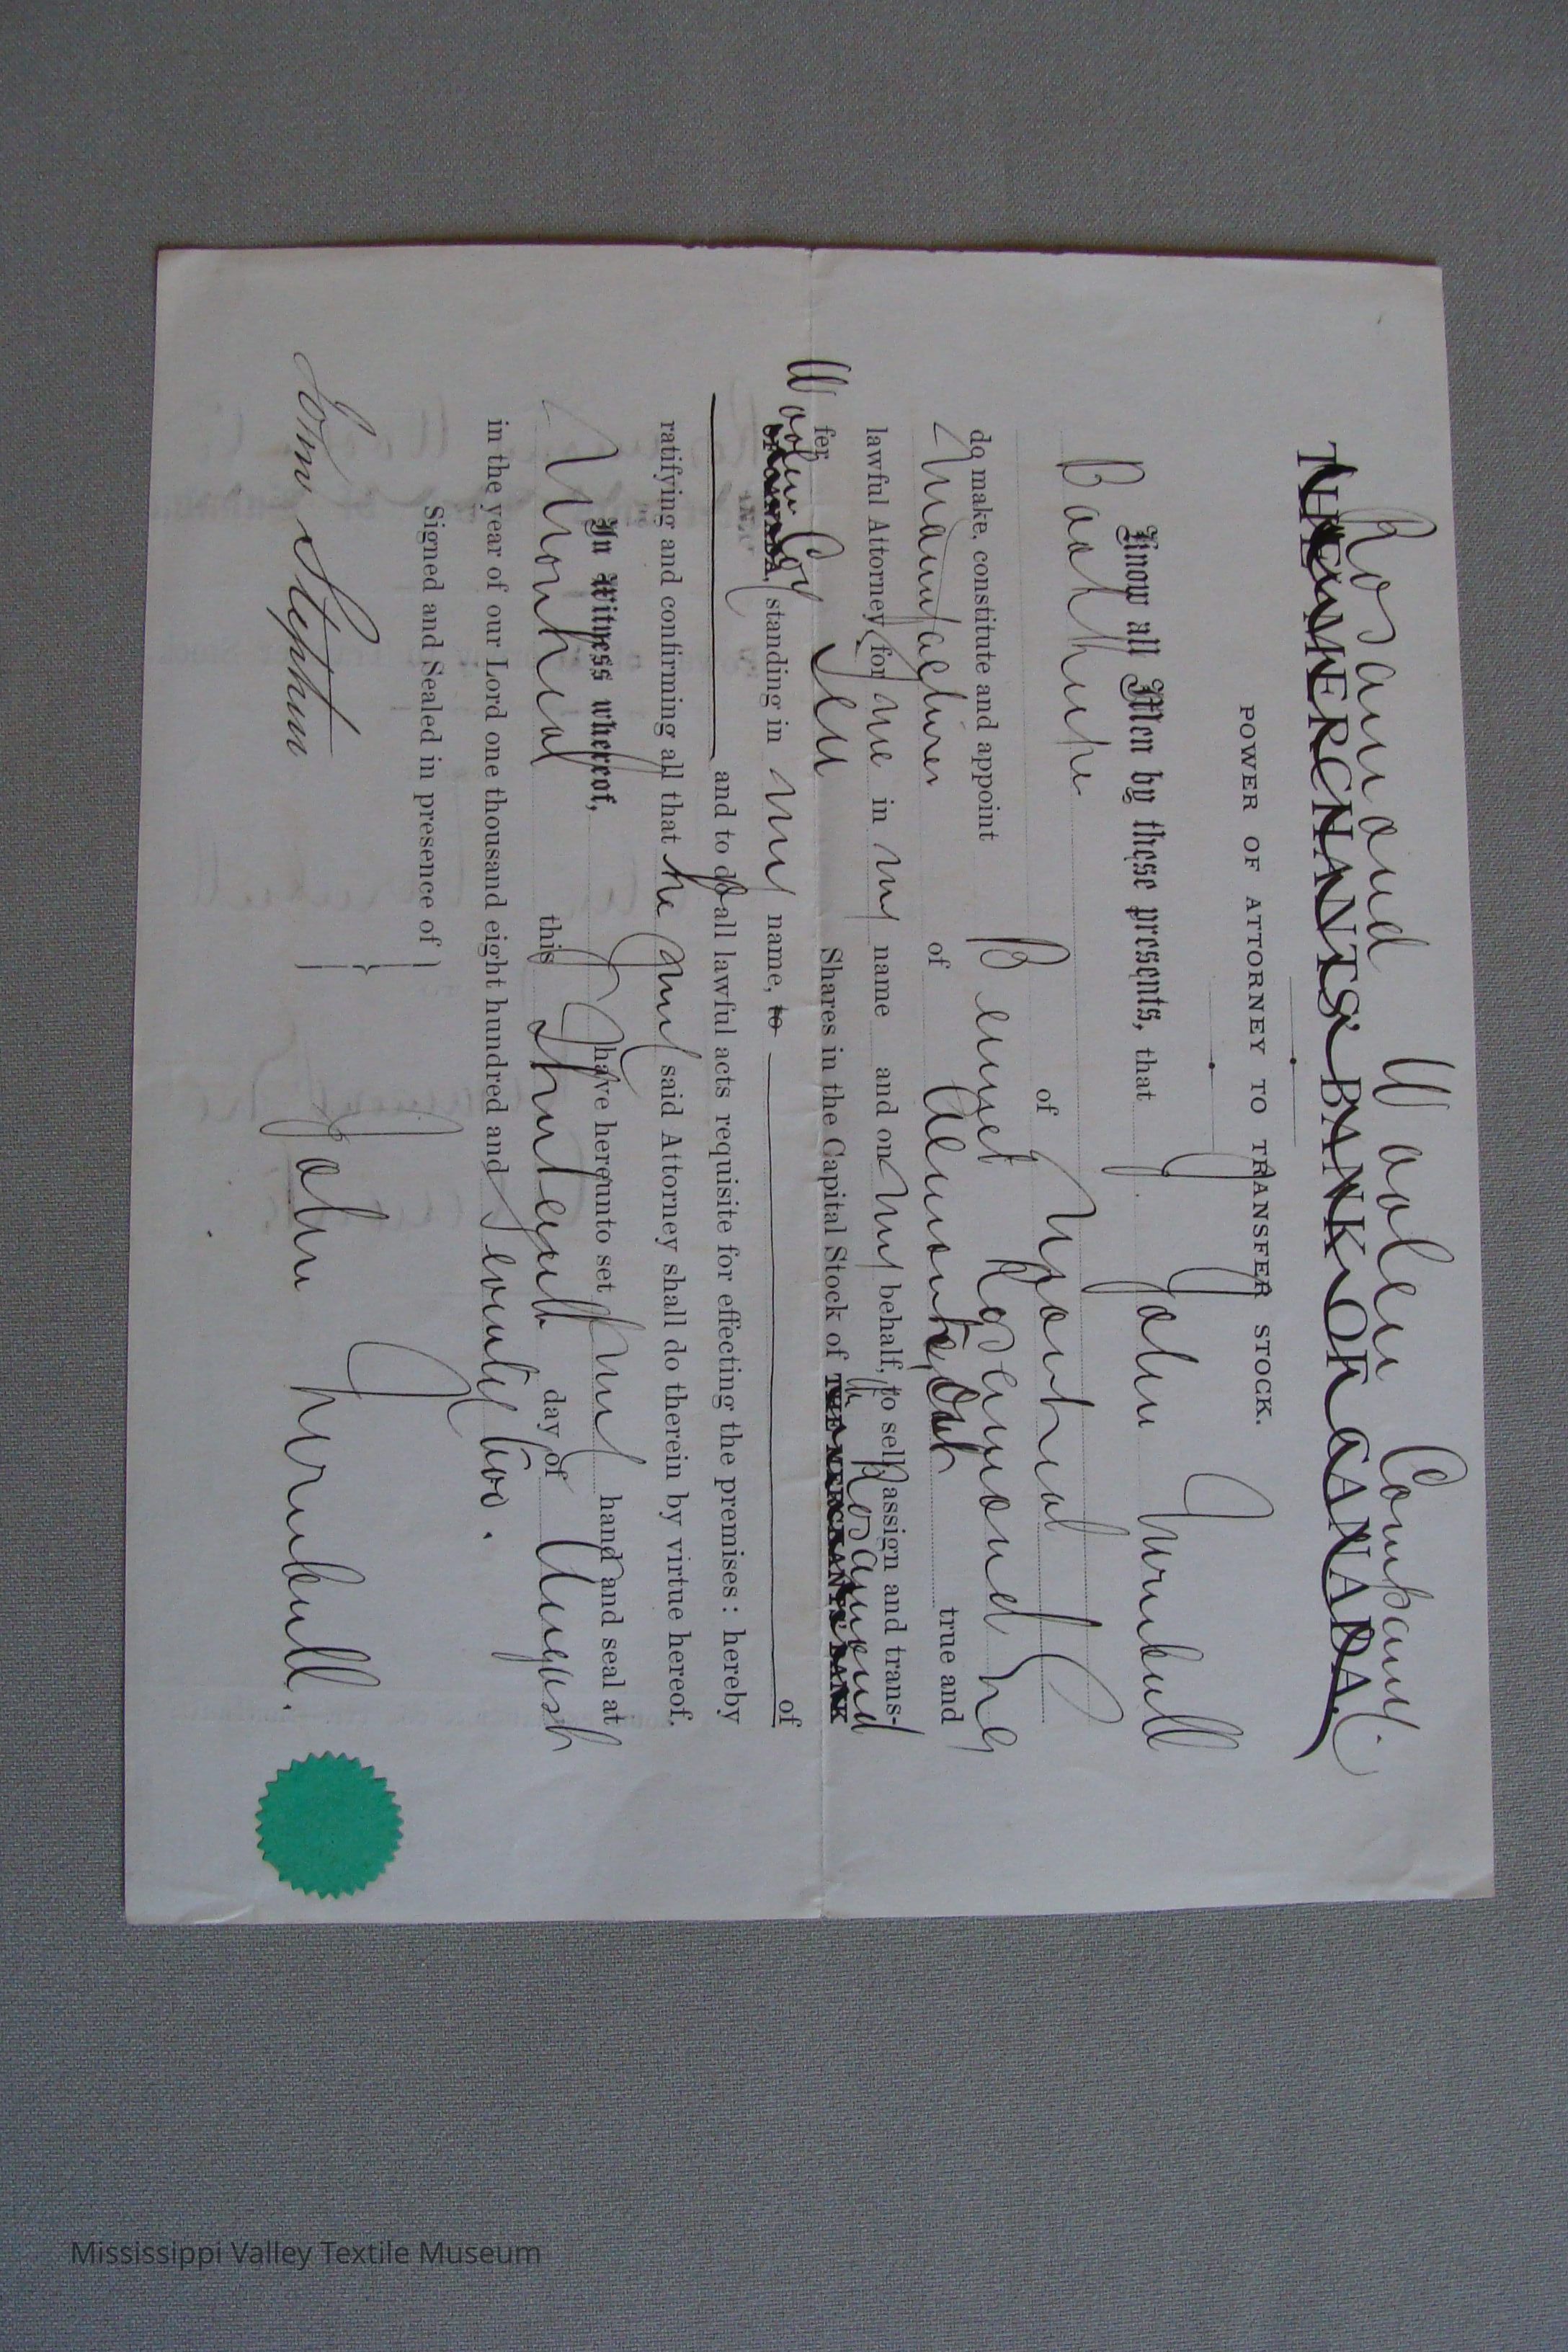 Rosamond Woolen Company.
THE MERCHANTS' BANK OF CANADA.
POWER OF ATTORNEY TO TRANSFER STOCK.
Know all Men by these presents, that I. John Turnbull
of Montreal
do make, constitute and appoint Bennet Rosamond
Manufacturer of Almonte, Ont true and
lawful Attorney for me in my name and on my behalf, to sell assign and trans-
fer Ten Shares in the Capital Stock of THE MERCHANTS' BANK
the Rosamond
Woolen Coy
OF CANADA, standing in my name, to of
and to do all lawful acts requisite for effecting the premises: hereby
ratifying and confirming all that he my said Attorney shall do therein by virtue hereof.
In Witness whereof, I have hereunto set my hand and seal at
Montreal this Thirteenth day of August
in the year of our Lord one thousand eight hundred and Seventy two.
Signed and Sealed in presence of
Stephen John Turnbull.
Mississippi Valley Textile Museum